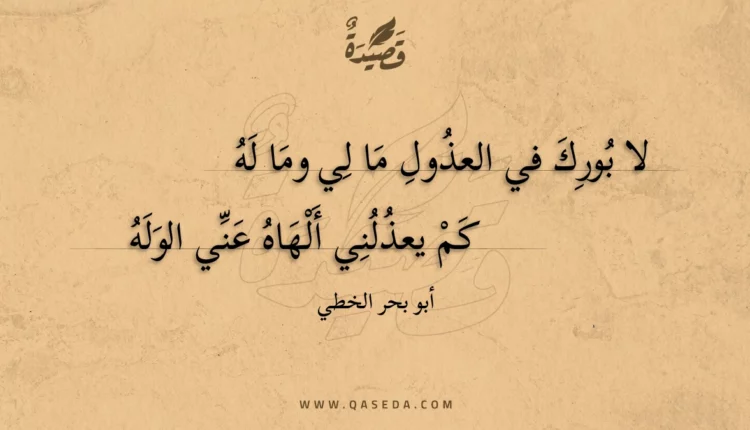 قَصِيْدَةٌ
لا بُورِكَ في العذُولِ مَا لِي ومَا لَهُ
كَمْ يعذُلُنِي أَلْهَاهُ عَنِّي الوَلَهُ
أبو بحر الخطي
WWW.QASEDA.COM